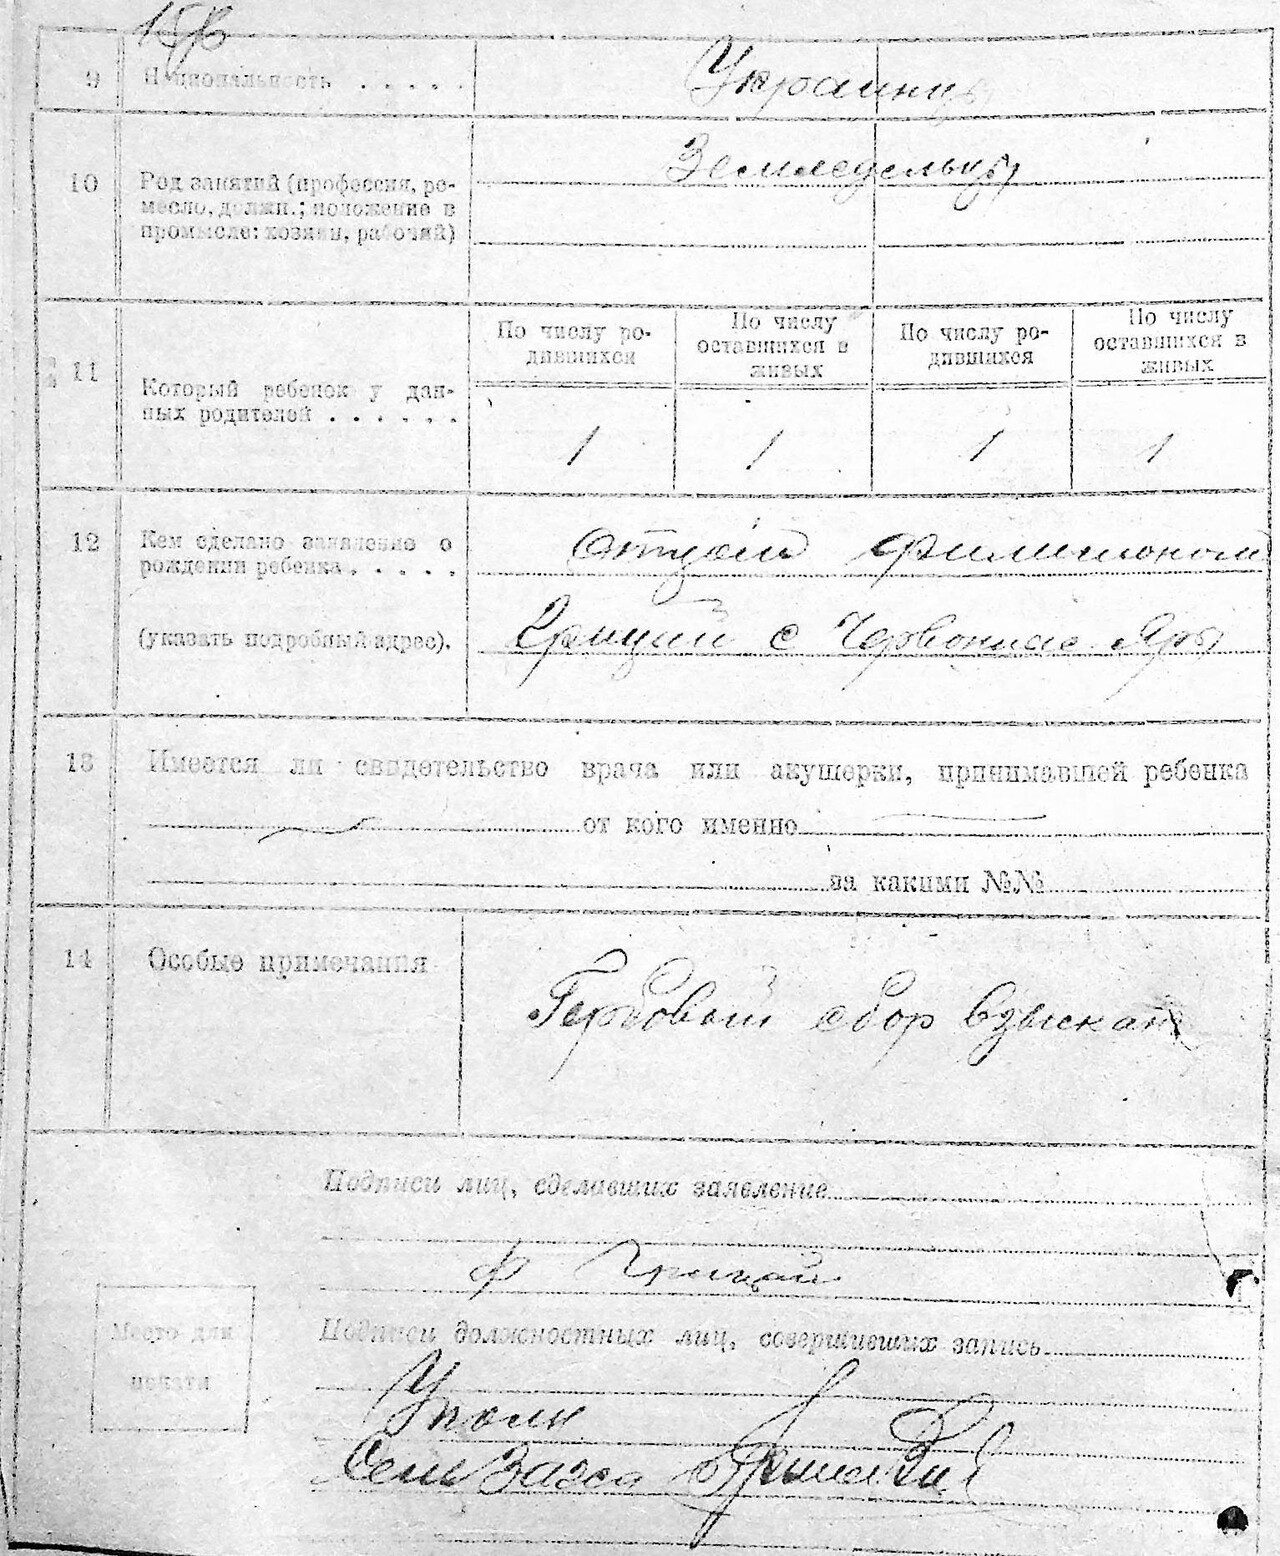 9 Национальность . . . . . Украинцы
10 Род занятий (профессия, ре-
месло, должн.; положение в
промысле: хозяин, рабочий)
Земледельцы
11 Который ребенок у дан-
ных родителей . . . . . .
По числу ро-
дившихся
По числу
оставшихся в
живых
По числу ро-
дившихся
По числу
оставшихся в
живых
1 1 1 1
12 Кем сделано заявление о
рождении ребенка . . . . .
(указать подробный адрес).
отцом Филимоном
Грицай с Червоные Яры
13 Имеется ли свидетельство врача или акушерки, принимавшей ребенка
от кого именно
за какими №№
14 Особые примечания
Гербовый сбор взыскан
Подписи лиц, сделавших заявление
Ф Грицай
Место для
печати
Подписи должностных лиц, совершивших запись
Уполн
Сель Загса